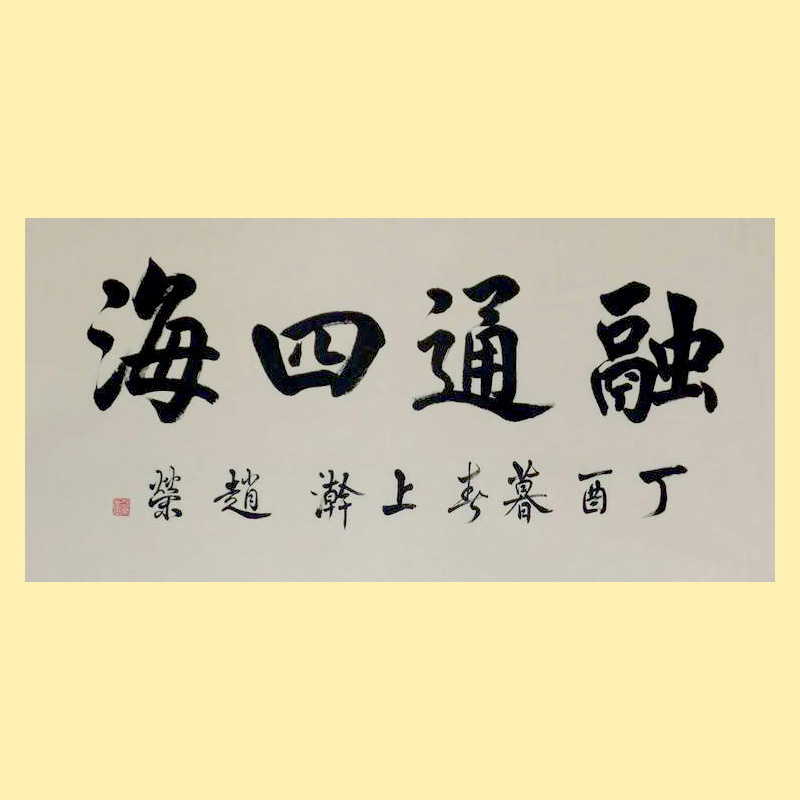 融通四海
丁酉暮春上澣趙榮